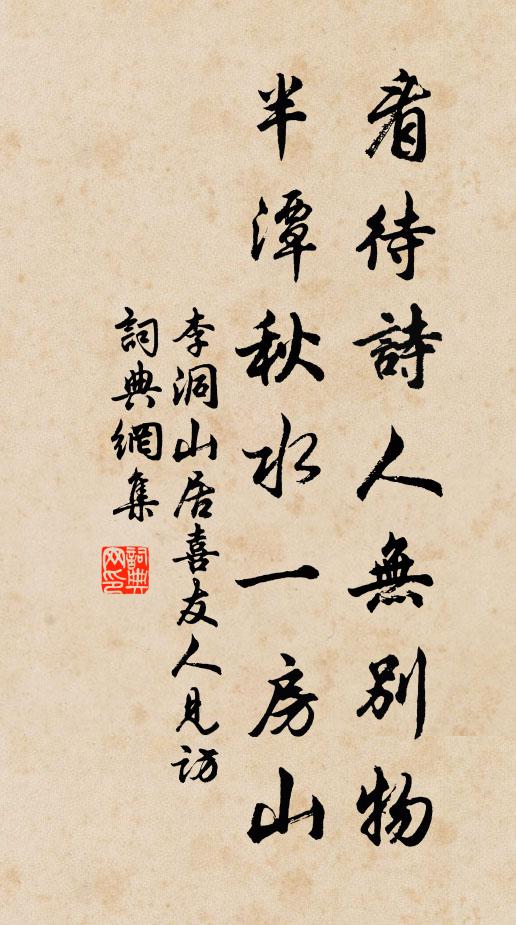 看待詩人無別物
半潭秋水一房山
李洞山居喜友人見訪
詞典網集
詞典網印